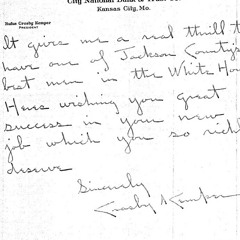 City National Bank & Trust
Kansas City, Mo.
Rufus Crosby Kemper
PRESIDENT
It gives me a real thrill t
have one of Jackson County's
best men in the White Hou
Heres wishing you great
success in your new
job which you so richl
deserve
Sincerely
Crosby Kemper